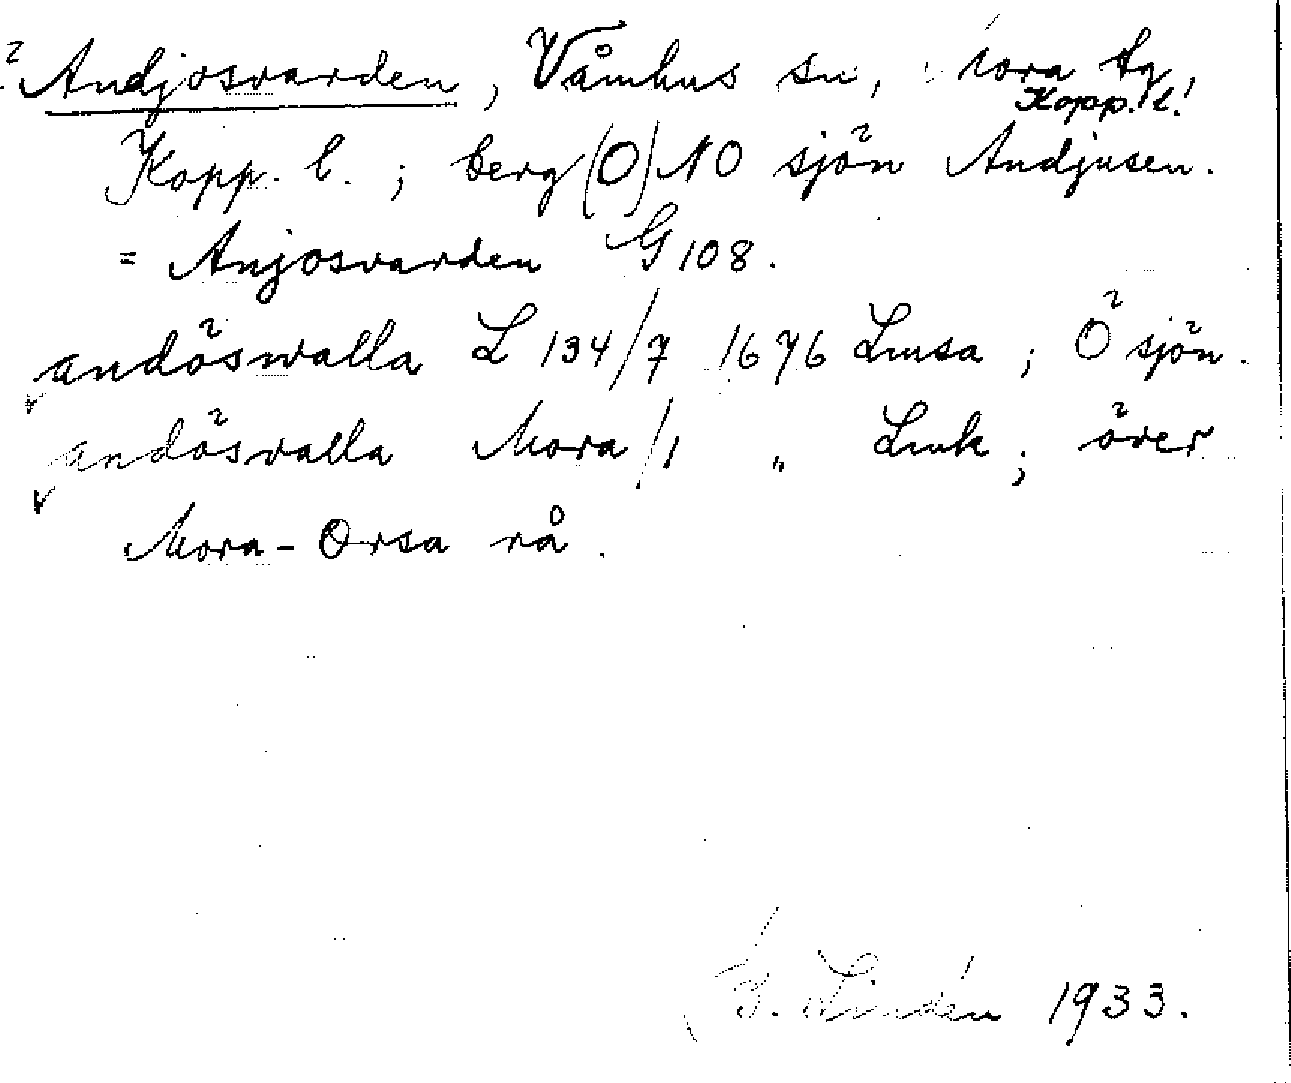 Andjosvarden, Våmhus sn, Mora tg,
Kopp. l.
Kopp. l. ; berg (O) NO sjön Andjusen.
= Anjosvarden G 108.
andöswalla L 134/7 1676 Lmsa ; Ö sjön.
andösvalla Mora/1 " Lmk ; över
Mora-Orsa rå.
B. Lindén 1933.